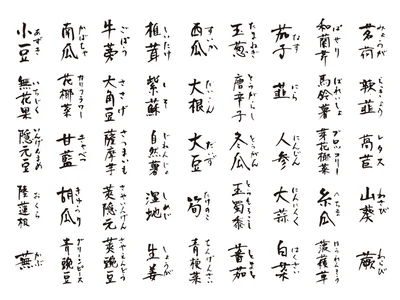 茗荷 みょうが
辣韮 らっきょう
萵苣 レタス
山葵 わさび
蕨 わらび
和蘭芹 ぱせり
馬鈴薯 ばれいしょ
芽花椰菜 ブロッコリー
糸瓜 へちま
菠薐草 ほうれんそう
茄子 なす
韮 にら
人参 にんじん
大蒜 にんにく
白菜 はくさい
玉葱 たまねぎ
唐辛子 とうがらし
冬瓜 とうがん
玉蜀黍 とうもろこし
蕃茄 とまと
西瓜 すいか
大根 だいこん
大豆 だいず
筍 たけのこ
青梗菜 ちんげんさい
椎茸 しいたけ
紫蘇 しそ
自然薯 じねんじょ
湿地 しめじ
生姜 しょうが
牛蒡 ごぼう
大角豆 ささげ
薩摩芋 さつまいも
莢隠元 さやいんげん
莢豌豆 さやえんどう
南瓜 かぼちゃ
花椰菜 カリフラワー
甘藍 キャベツ
胡瓜 きゅうり
青豌豆 グリーンピース
小豆 あずき
無花果 いちじく
隠元豆 いんげんまめ
陸蓮根 おくら
蕪 かぶ